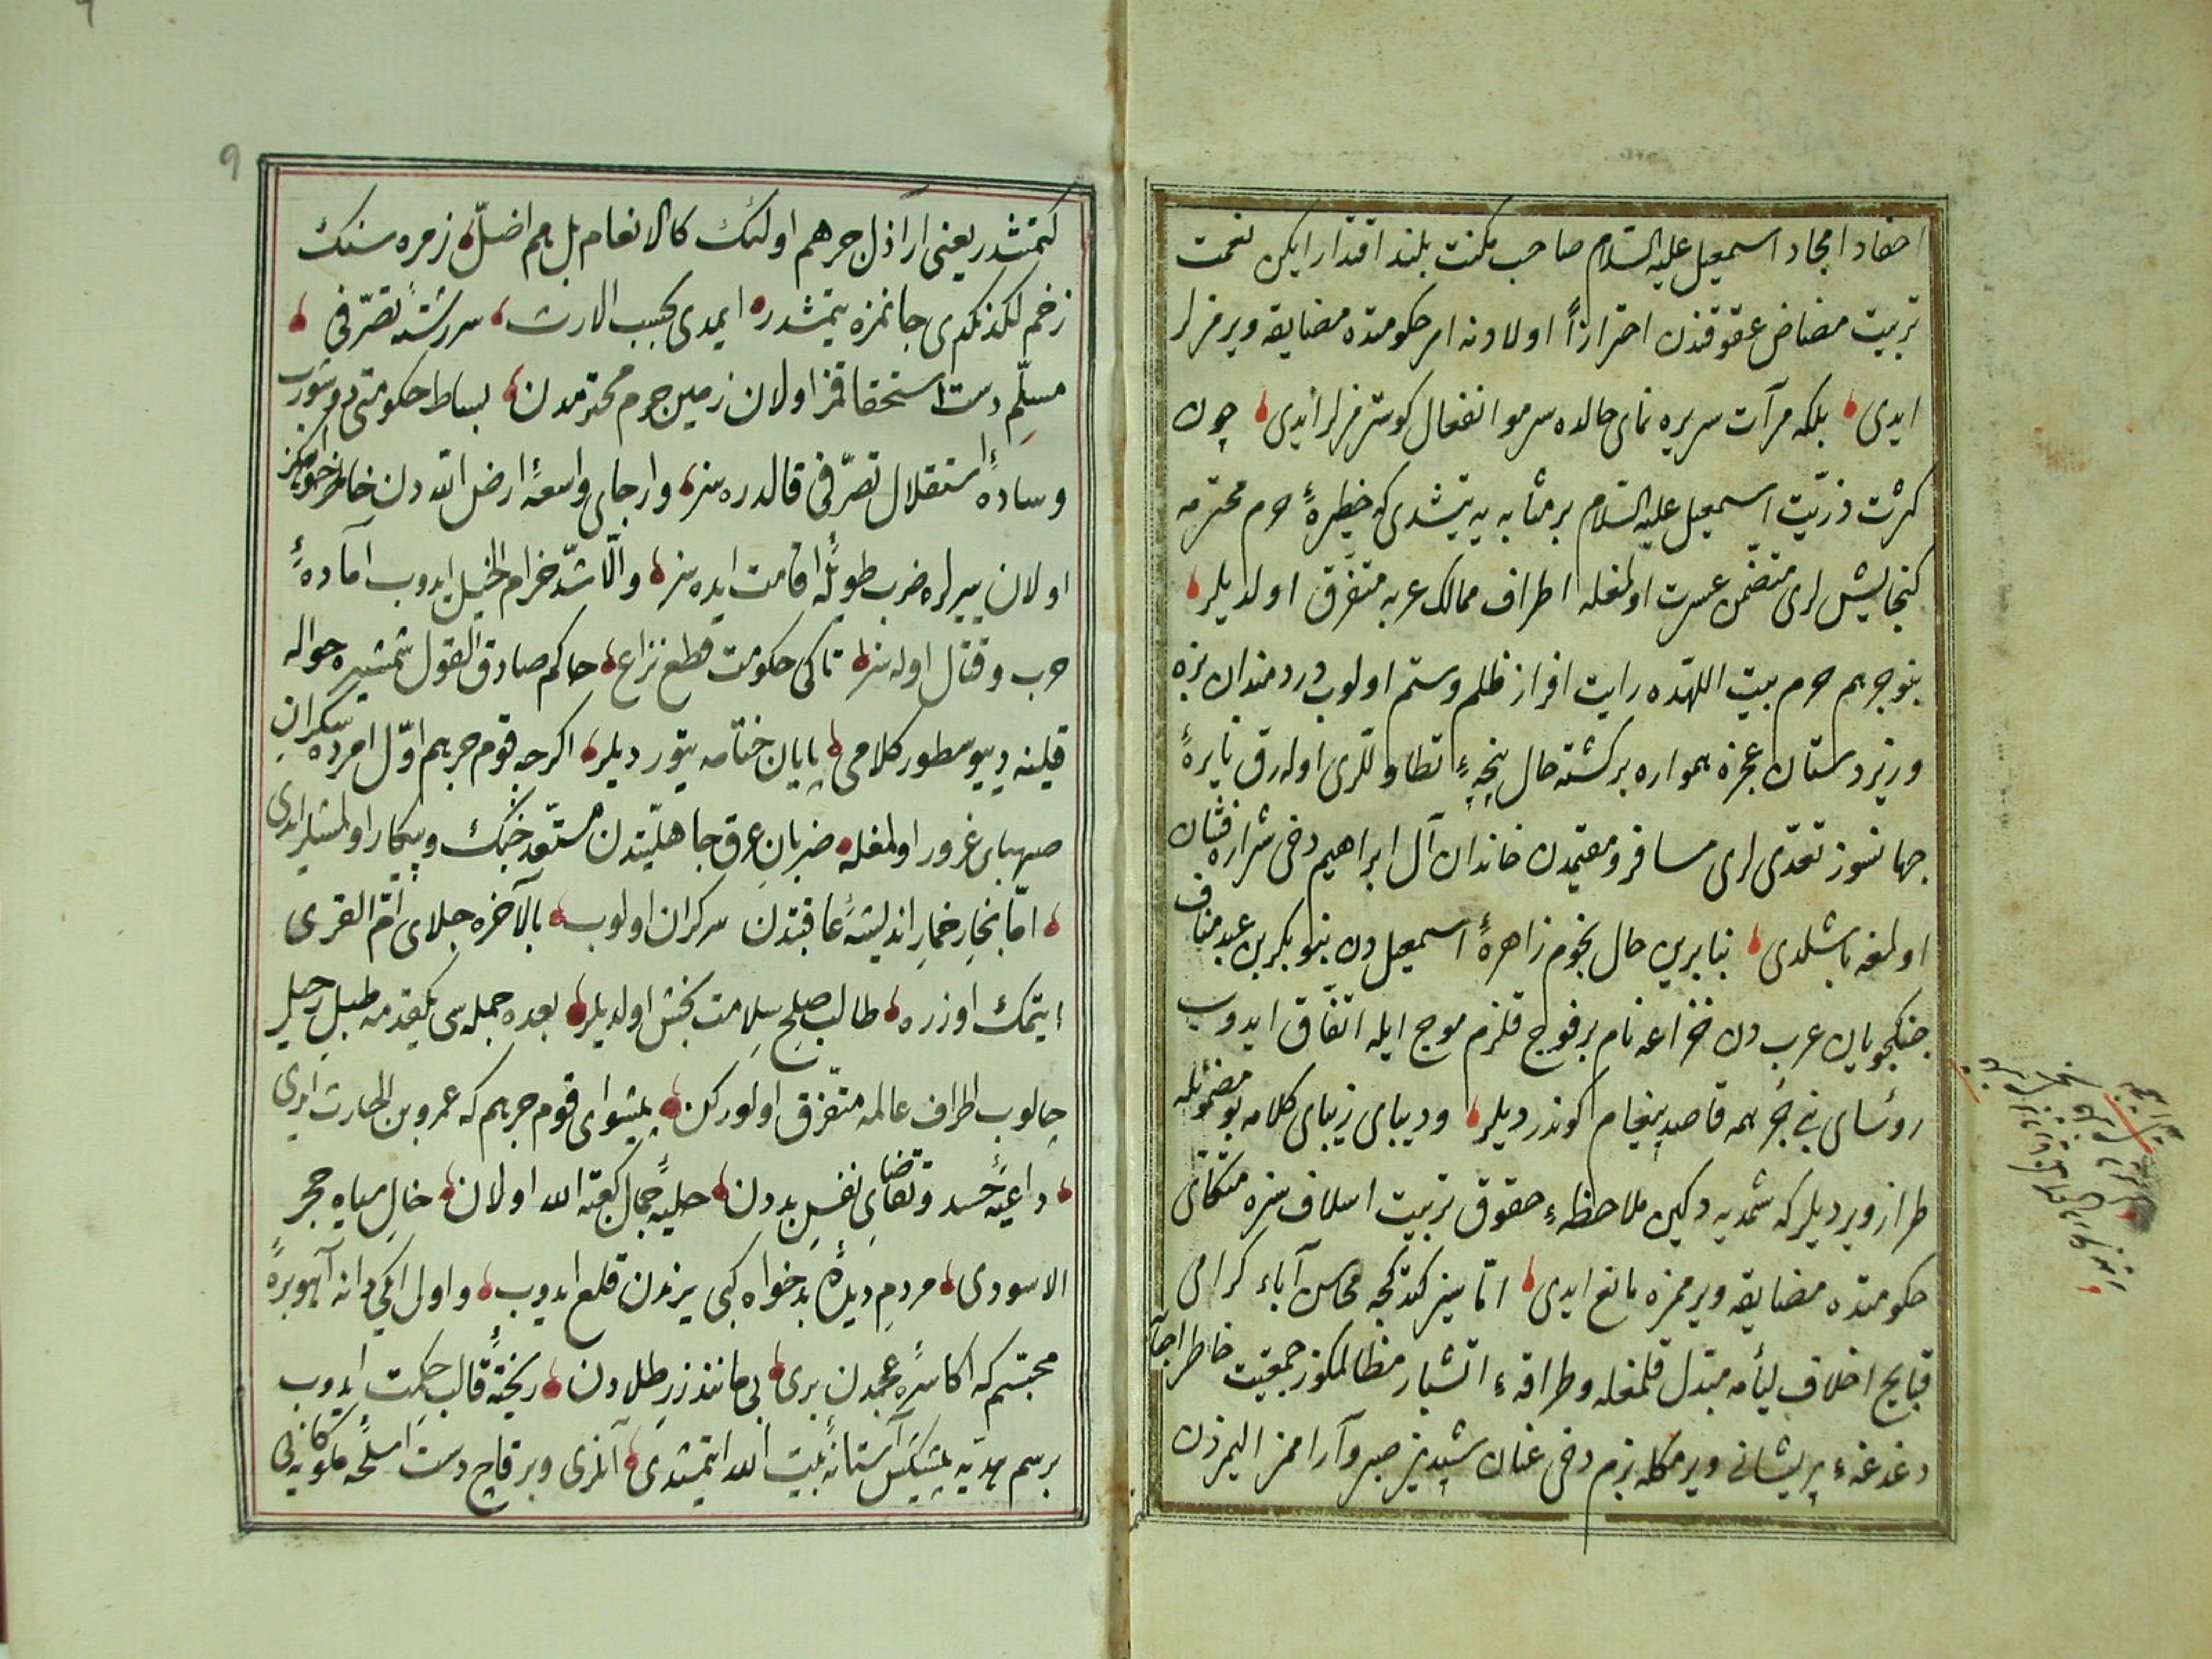 احفاد امجاد اسمعیل علیه السّلام صاحب مکنت بلند اقتدار ایکن نعمت
تربیت مضاض عقوقندن احترازاً اولادنه امر حکومتده مضایقه ویرمزلر
ایدی بلکه مرآت سریره نمای حالده سرمو انفعال کوسترمزلر ایدی چون
کثرت ذرّیت اسمعیل علیه السّلام بر مثابه یه یتیشدی که خطیرهٔ حرم محترمه
کنجایش لری متضمّن عسرت اولمغله اطراف ممالک عربه متفرّق اولدیلر
بنو جرهم حرم بیت اللهده رایت افراز ظلم وستم اولوب دردمندان بزه
وزیردستان عجزه همواره برکشته حال پنجهٔ تطاوللری اوله رق نایرهٔ
جهانسوز تعدّی لری مسافر و مقیمدن خاندان آل ابراهیم دخی شراره فشان
اولمغه باشلدی بنابرین حال نجوم زاهرهٔ اسمعیل دن بنو بکر بن عبد مناف
جنکجویان عرب دن خزاعه نام بر فوج قلزم موج ایله اتّفاق ایدوب
رؤسای بنی جرهمه قاصد پیغام کوندردیلر ودیبای زیبای کلامه بو مضمونله
طراز ویردیلر که شمدیه دکین ملاحظهٔ حقوق تربیت اسلاف سزه متکاتی
حکومتده مضایقه ویرممزه مانع ایدی امّا سیز کتدکجه محاسن آباء کرامی
قبایح اخلاف لیأمه مبتدل قلمغله وطراقهٔ انتشار مظالمکوز جمعیّت خاطر احبّایه
دغدغهٔ پریشانی ویرمکله بزم دخی عنان شبدیز صبر وآراممز الیمزدن
کیتمشدر یعنی اراذل جرهم اولئک کالانعام بل هم اضلّ زمره سنک
زخم لکدنکدی جانمزه یتمشدر ایمدی بحسب الارث سررشتهٔ تصرّفی
مسلّم دست استحقاقمز اولان زمین حرم محترمدن بساط حکومتی دوشوروب
وسادهٔ استقلال تصرّفی قالدره سز وارجای واسعهٔ ارض الله دن خاطرخواهکز
اولان ییرلره ضرب طویلهٔ اقامت ایده سز والّا شدّ خرام الخیل ایدوب آمادهٔ
حرب وقتال اوله سز تاکی حکومت قطع نزاع حاکم صادق القول شمشیره حواله
قلینه دییو سطور کلامی پایان ختامه یتوردیلر اکرچه قوم جرهم اوّل امرده سکران
صهبای غرور اولمغله ضربان عرق جاهلیّتدن مستعدّ جنک وپیکار اولمشلر ایدی
امّا بخار خمار اندیشهٔ عاقبتدن سرکران اولوب بالآخره جلای امّ القری
ایتمک اوزره طالب صلح سلامت بخش اولدیلر بعده جمله سی یکقدمه طبل رحیل
چالوب اطراف عالمه متفرّق اولورکن پیشوای قوم جرهم که عمرو بن الحارث ایدی
داعیهٔ حسد وتقاضای نفس بددن حلیهٔ جمال کعبة الله اولان خال سیاه حجر
الاسودی مردم دیدهٔ بدخواه کبی یرندن قلع ایدوب واول ایکی دانه آهو برهٔ
مجسّم که اکاسرهٔ عجمدن بری بی مانند زر طلادن ریختهٔ قالب حکمت ایدوب
برسم هدیّه پیشکش آستانهٔ بیت الله ایتمشدی آنلری وبر قاچ دست اسلحهٔ ملوکانه یی